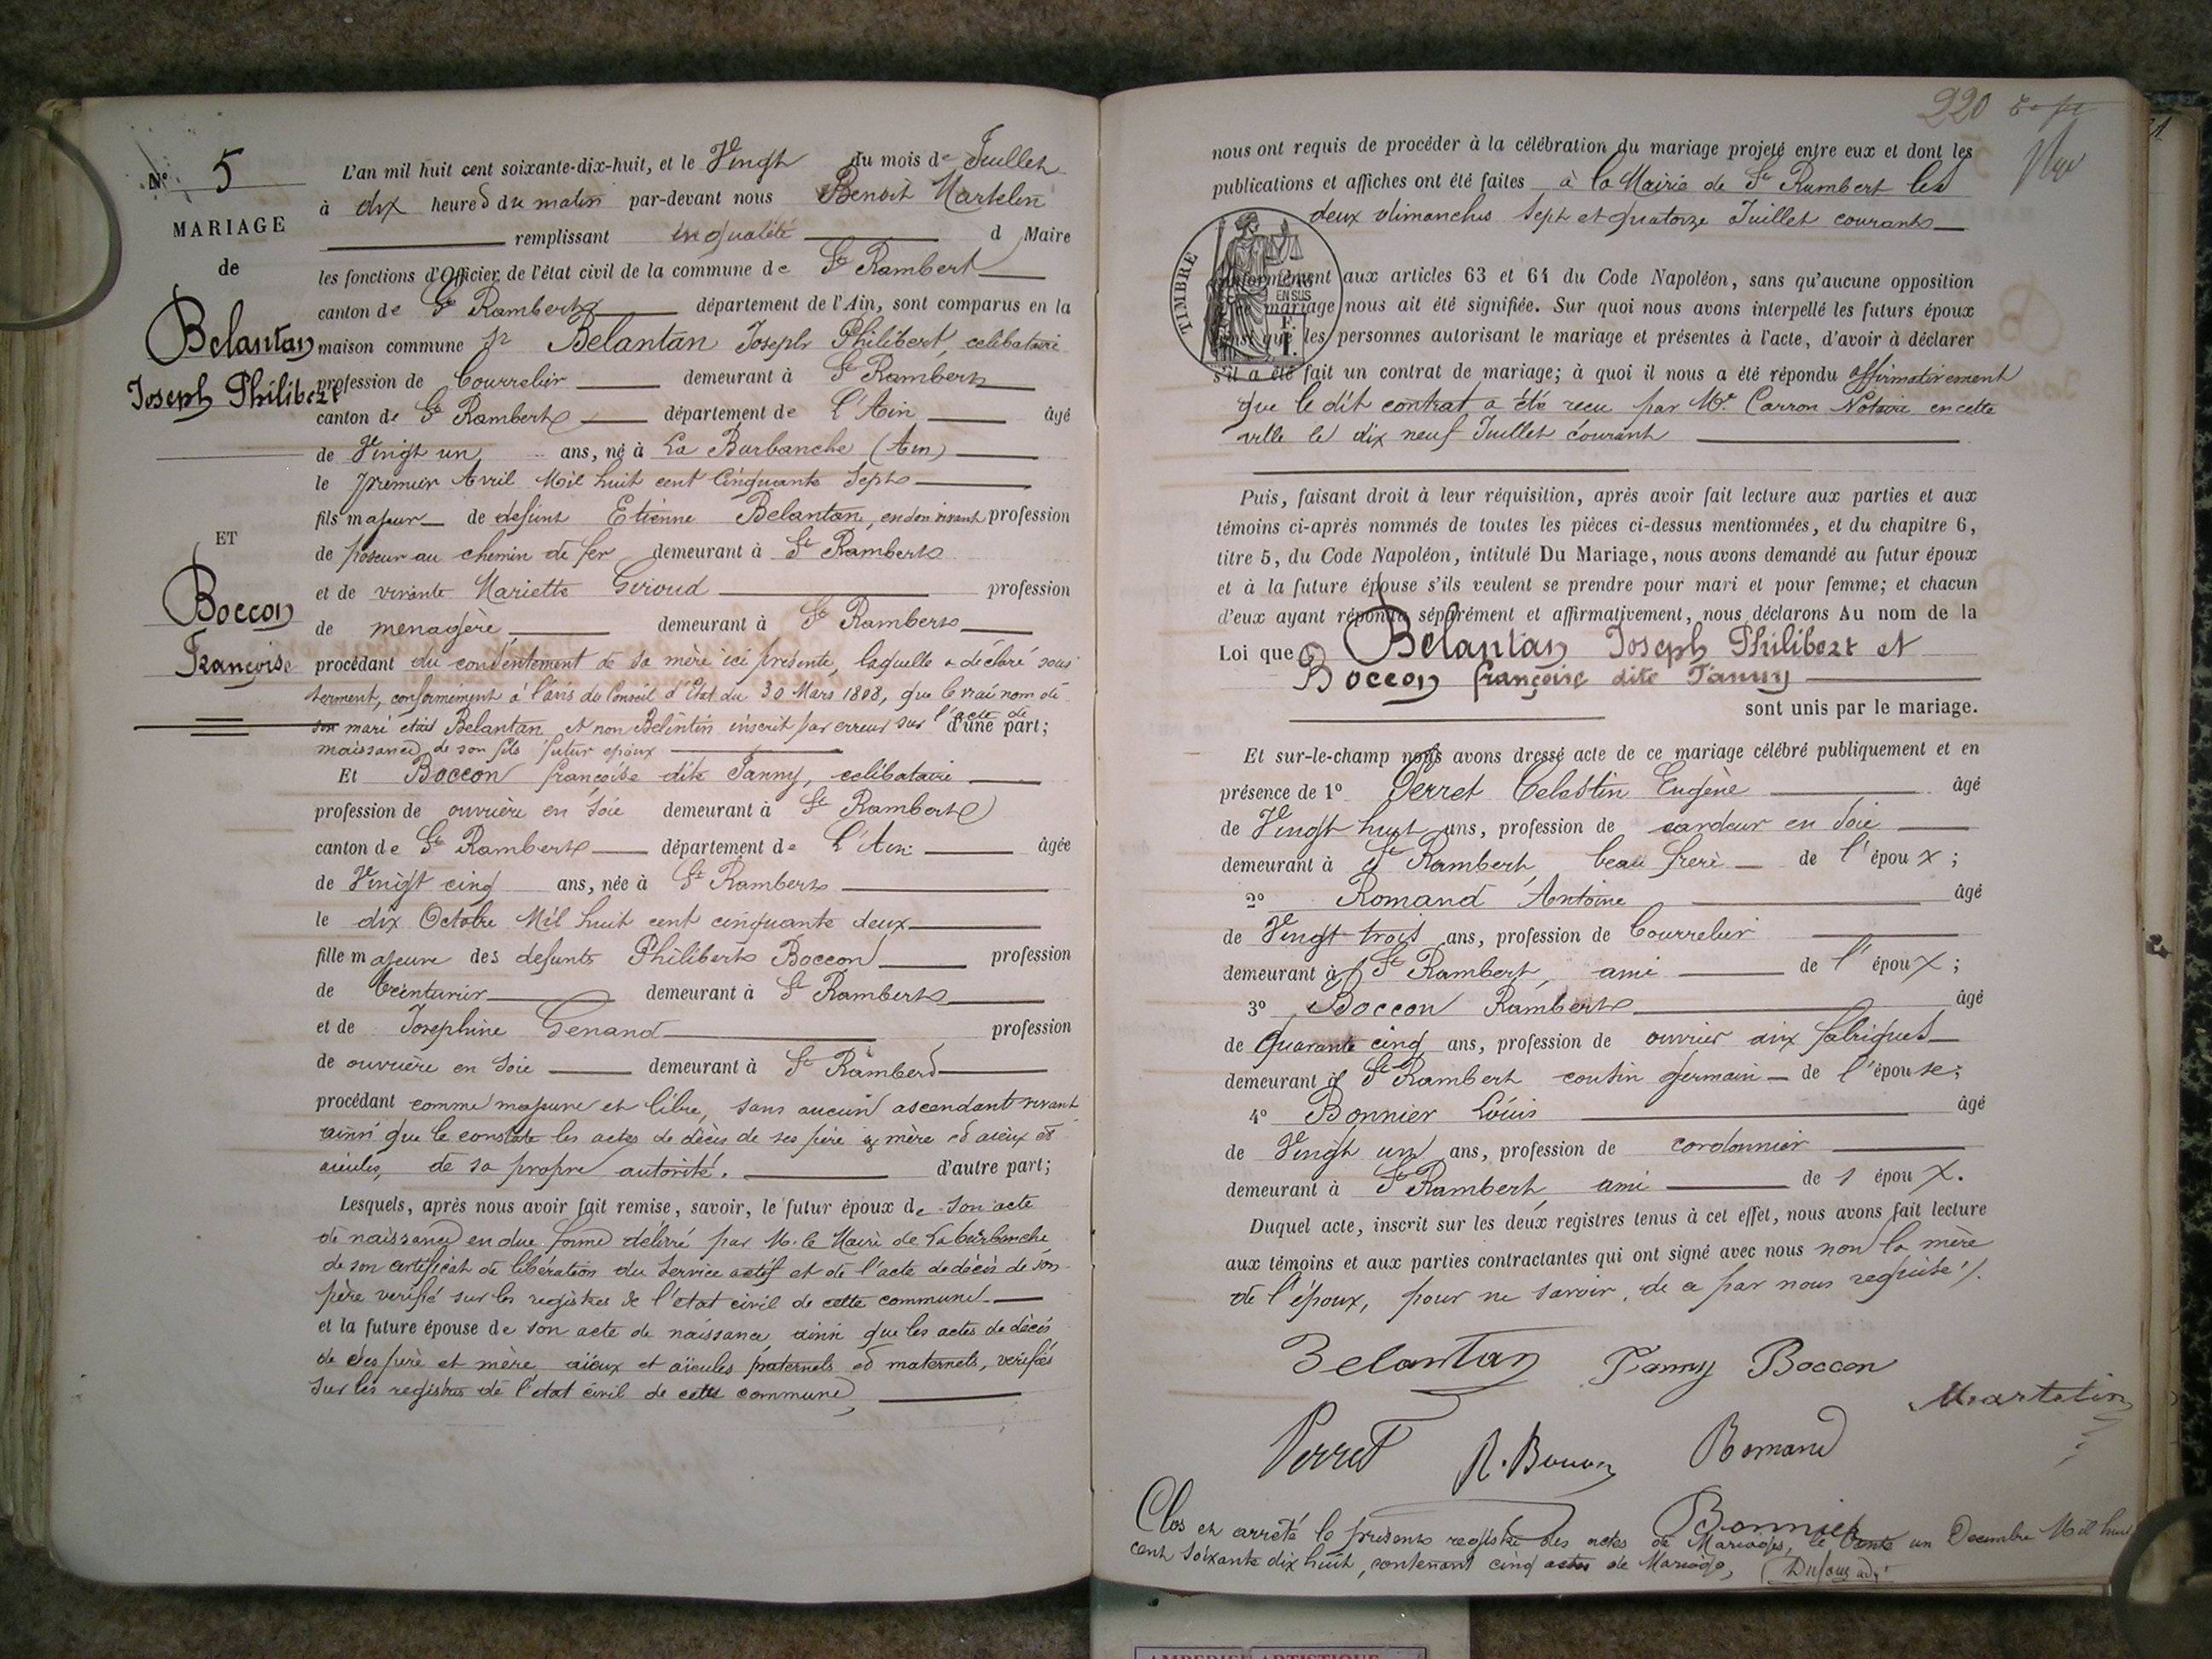 N° 5
MARIAGE
de
Belantan
Joseph Philibert
ET
Boccon
Françoise
L'an mil huit cent soixante-dix-huit, et le Vingt du mois de Juillet
à dix heures du matin par-devant nous Benoit Martelin
remplissant en qualité d Maire
les fonctions d'Officier de l'état civil de la commune de St Rambert
canton de St Rambert département de l'Ain, sont comparus en la
maison commune Sr Belantan Joseph Philibert, celibataire
profession de Courrelier demeurant à St Rambert
canton de St Rambert département de L'Ain âgé
de Vingt un ans, né à La Burbanche (Ain)
le premier Avril Mil huit cent Cinquante Sept
fils majeur de defunt Etienne Belantan, en son vivant profession
de poseur au chemin de fer demeurant à St Rambert
et de vivante Mariette Giroud profession
de menagère demeurant à St Rambert
procédant du consentement de sa mère ici présente, laquelle a déclaré sous
serment, conformément à l'avis du Conseil d'Etat du 30 Mars 1808, que le vrai nom de
son mari était Belantan et non Belintin inscrit par erreur sur l'acte de d'une part;
naissance de son fils futur epoux
Et Boccon françoise dite Fanny, celibataire
profession de ouvrière en Soie demeurant à St Rambert
canton de St Rambert département de L'Ain âgée
de Vingt cinq ans, née à St Rambert
le dix Octobre Mil huit cent cinquante deux
fille majeure des defunts Philibert Boccon profession
de teinturier demeurant à St Rambert
et de Josephine Genand profession
de ouvrière en Soie demeurant à St Rambert
procédant comme majeure et libre, sans aucun ascendant vivant
ainsi que le constate les actes de décès de ses père & mère et aïeux et
aïeules, de sa propre autorité. d'autre part;
Lesquels, après nous avoir fait remise, savoir, le futur époux de son acte
de naissance en due forme délivré par M. le Maire de Laburbanche
de son certificat de libération du Service actif et de l'acte de décès de son
père verifié sur les registres de l'état civil de cette commune
et la future épouse de son acte de naissance ainsi que les actes de décès
de ses père et mère aïeux et aïeules paternels et maternels, verifiés
sur les registres de l'état civil de cette commune
220
nous ont requis de procéder à la célébration du mariage projeté entre eux et dont les
publications et affiches ont été faites à la Mairie de St Rambert les
deux dimanches Sept et quatorze Juillet courants
TIMBRE
EN SUS
conformément aux articles 63 et 64 du Code Napoléon, sans qu'aucune opposition
à ce mariage nous ait été signifiée. Sur quoi nous avons interpellé les futurs époux
ainsi que les personnes autorisant le mariage et présentes à l'acte, d'avoir à déclarer
s'il a été fait un contrat de mariage; à quoi il nous a été répondu affirmativement
que le dit contrat a été reçu par Me Carron Notaire en cette
ville le dix neuf Juillet courant
Puis, faisant droit à leur réquisition, après avoir fait lecture aux parties et aux
témoins ci-après nommés de toutes les pièces ci-dessus mentionnées, et du chapitre 6,
titre 5, du Code Napoléon, intitulé Du Mariage, nous avons demandé au futur époux
et à la future épouse s'ils veulent se prendre pour mari et pour femme; et chacun
d'eux ayant répondu séparément et affirmativement, nous déclarons Au nom de la
Loi que Belantan Joseph Philibert et
Boccon françoise dite Fanny
sont unis par le mariage.
Et sur-le-champ nous avons dressé acte de ce mariage célébré publiquement et en
présence de 1° Perret Celestin Eugène âgé
de Vingt huit ans, profession de cardeur en Soie
demeurant à St Rambert, beau frère de l'époux;
2° Romand Antoine âgé
de Vingt trois ans, profession de Courrelier
demeurant à St Rambert, ami de l'époux;
3° Boccon Rambert âgé
de Quarante cinq ans, profession de ouvrier aux fabriques
demeurant à St Rambert cousin germain de l'épouse;
4° Bonnier Louis âgé
de Vingt un ans, profession de cordonnier
demeurant à St Rambert ami de l époux.
Duquel acte, inscrit sur les deux registres tenus à cet effet, nous avons fait lecture
aux témoins et aux parties contractantes qui ont signé avec nous non la mère
de l'époux, pour ne savoir, de ce par nous requise.
Belantan Fanny Boccon
Martelin
Perret R. Boccon Romand
Bonnier
Clos et arrêté le présent registre des actes de Mariages, le trente un Decembre Mil huit
cent soixante dix huit, contenant cinq actes de Mariage, Dufour adjt
AMBERIEU ARTISTIQUE